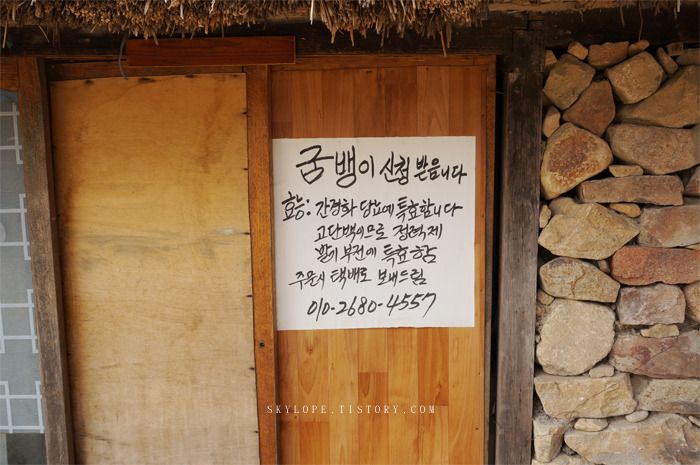 굼벵이 신청 받읍니다
효능: 간경화 당뇨에 특효합니다
고단백이므로 정력제
발기 부전에 특효함
주문시 택배로 보내드림
010-2680-4557
SKYLOPE.TISTORY.COM